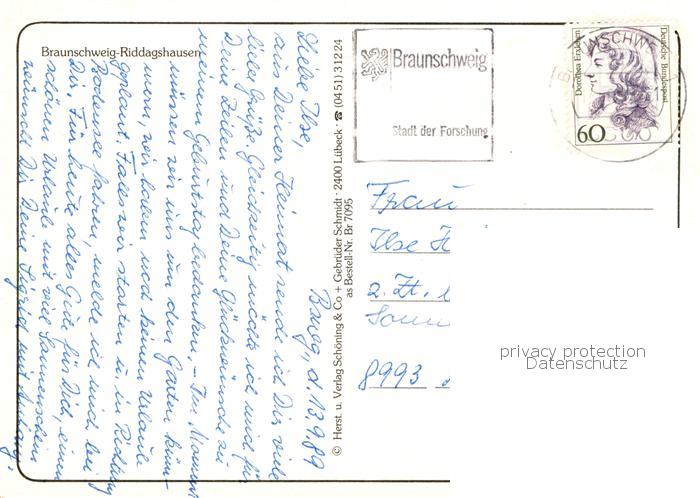 Braunschweig-Riddagshausen
Braunschweig
Stadt der Forschung
Dorothea Erxleben
Deutsche Bundespost
60
Brschwg, d. 13.9.89
Liebe Ilse,
aus Deiner Heimat send ich Dir viele
liebe Grüße. Gleichzeitig möchte ich mich für
Deine Zeilen und Deine Glückwünsche zu
meinem Geburtstag bedanken. – Im Moment
müssen wir uns um den Garten küm-
mern, wir haben noch keinen Urlaub
geplant. Falls wir starten u. in Richtung
Bodensee fahren, melde ich mich bei
Dir. Für heute alles Gute für Dich, einen
schönen Urlaub mit viel Sonnenschein
wünscht Dir Deine Sigrid mit
© Herst. u. Verlag Schöning & Co + Gebrüder Schmidt · 2400 Lübeck · ☎ (0451) 31224
as Bestell-Nr. Br 7095
Frau
Ilse H
z. Zt.
Sonn
8993
privacy protection
Datenschutz